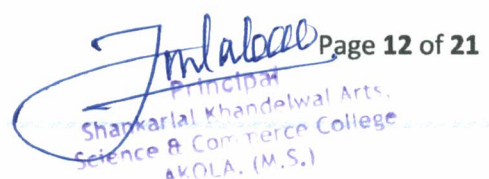 Page 12 of 21
Principal
Shankarlal Khandelwal Arts,
Science & Commerce College
AKOLA. (M.S.)